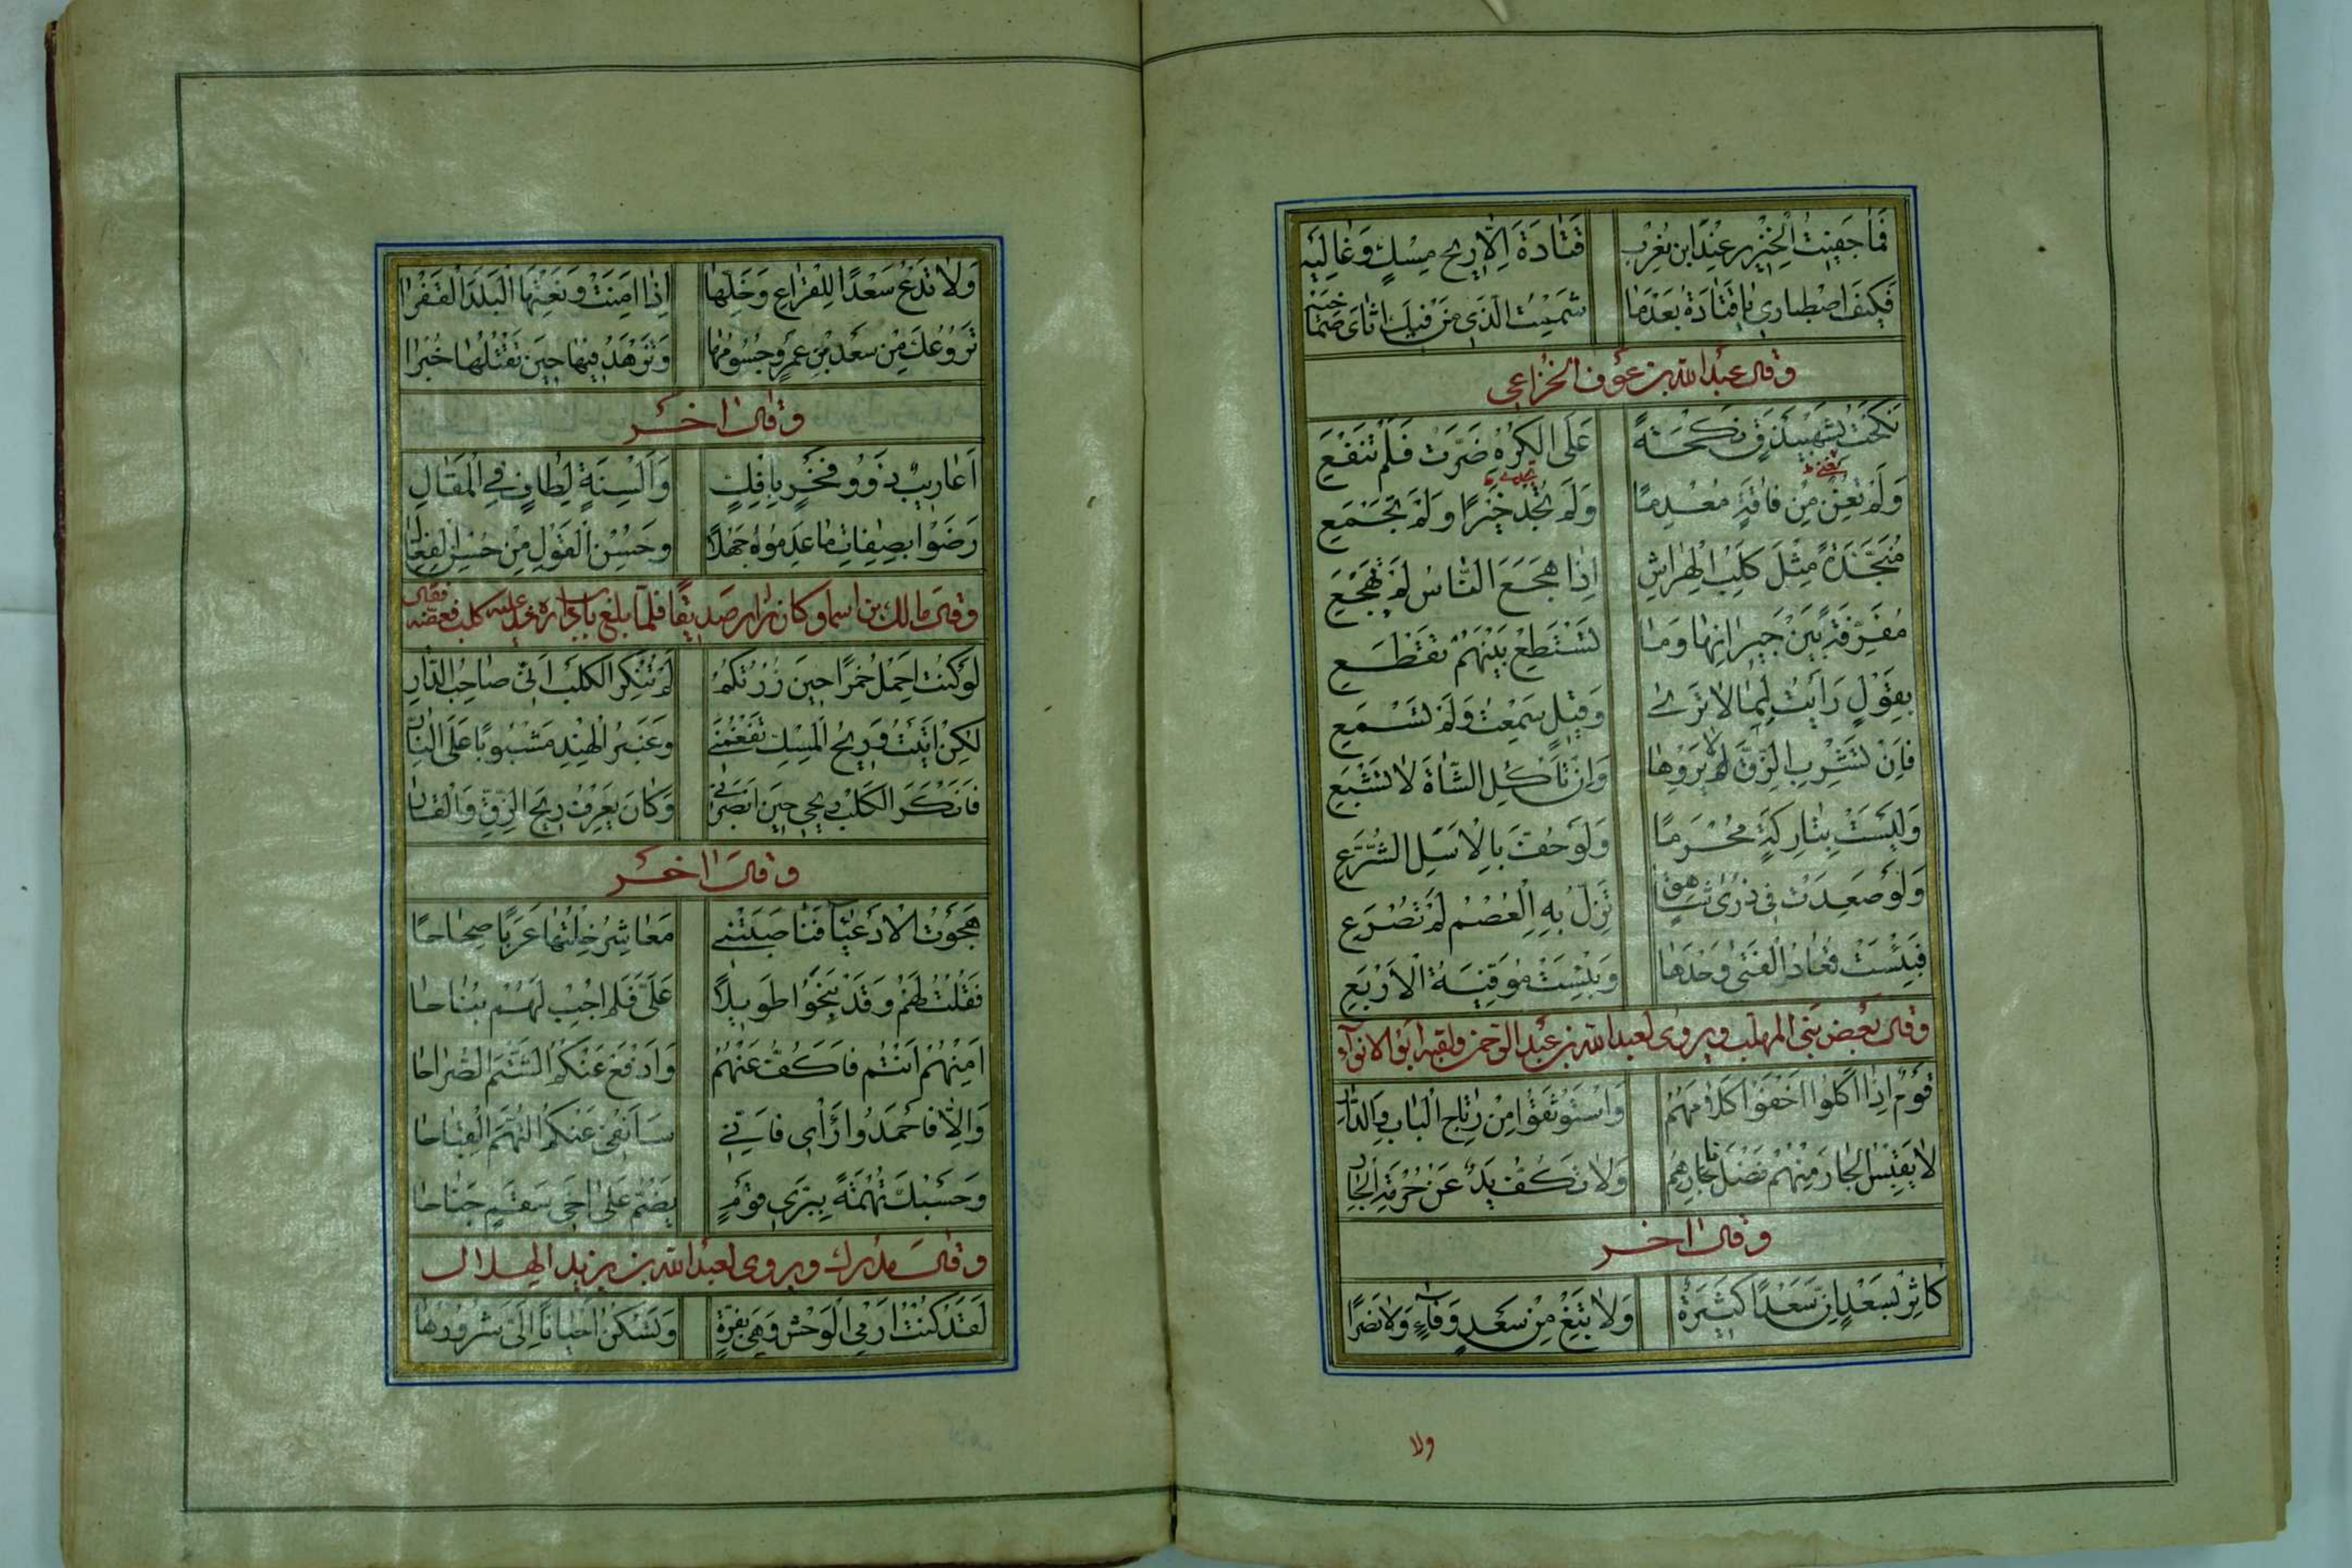 فَمَا جِيفَةُ الْخِنْزِيرِ عِنْدَ ابْنِ مُغْرِبٍ قَتَادَةَ اِلَّا رِيحُ مِسْكٍ وَغَالِيَهْ
فَكَيْفَ اصْطِبَارِي يَا قَتَادَةُ بَعْدَمَا شَمَمْتُ الَّذِي مِنْ فِيكَ
وقال عبد الله بن عوف الخزاعي
نَكَحْتُ نَكْحَةً عَلَى الْكُرْهِ ضَرَّتْ فَلَمْ تَنْفَعِ
وَلَمْ تُغْنِ مِنْ فَاقَةٍ مُعْدِمًا وَلَمْ تُجْدِ خَيْرًا وَلَمْ تَجْمَعِ
مُنَجَّذَةً مِثْلَ كَلْبِ الْهِرَاشِ اِذَا هَجَعَ النَّاسُ لَمْ تَهْجَعِ
مُفَرِّقَةً بَيْنَ جِيرَانِهَا وَمَا تَسْتَطِعْ بَيْنَهُمْ تَقْطَعِ
بِقَوْلٍ رَأَيْتُ لِمَا لَا تَرَى وَقِيلٍ سَمِعْتُ وَلَمْ تَسْمَعِ
فَاِنْ تَشْرَبِ الزِّقَّ لَا يُرْوِهَا وَاِنْ تَأْكُلِ الشَّاةَ لَا تَشْبَعِ
وَلَيْسَتْ بِتَارِكَةٍ مُحْرَمًا وَلَوْ حُفَّ بِالْاَسَلِ الشُّرَّعِ
وَلَوْ صَعِدَتْ فِي ذُرَى شَاهِقٍ تَزِلُّ بِهِ الْعُصْمُ لَمْ تُصْرَعِ
فَبِئْسَتْ قُعَادُ الْفَتَى وَحْدَهَا وَبِئْسَتْ مُوَفِّيَةُ الْاَرْبَعِ
وقال بعض بني المهلب ويروى لعبد الله بن عبد الرحمن ولقبه ابو الانواء
قَوْمٌ اِذَا اَكَلُوا اَخْفَوْا كَلَامَهُمُ وَاسْتَوْثَقُوا مِنْ رِتَاجِ الْبَابِ وَالدَّارِ
لَا يَقْبِسُ الْجَارُ مِنْهُمْ فَضْلَ نَارِهِمُ وَلَا تَكُفُّ يَدٌ عَنْ حُرْمَةِ الْجَارِ
وقال اخر
كَاثِرْ بِسَعْدٍ اِنَّ سَعْدًا كَثِيرَةٌ وَلَا تَبْغِ مِنْ سَعْدٍ وَفَاءً وَلَا نَصْرًا
ولا
وَلَا تَدْعُ سَعْدًا لِلْقِرَاعِ وَخَلِّهَا اِذَا اَمِنَتْ وَنَعْتَهَا الْبَلَدَ الْقَفْرَا
تَرُوعُكَ مِنْ سَعْدِ بْنِ عَمْرٍو جُسُومُهَا وَتَزْهَدُ فِيهَا حِينَ تَقْتُلُهَا خُبْرَا
وقال اخر
اَعَارِيبٌ ذَوُو فَخْرٍ بِاِفْكٍ وَاَلْسِنَةٍ لِطَافٍ فِي الْمَقَالِ
رَضُوا بِصِفَاتِ مَا عَدِمُوهُ جَهْلًا وَحُسْنُ الْقَوْلِ مِنْ حُسْنِ الْفِعَالِ
وقال مالك بن اسما وكان صديقا فلما بلغ باب داره كلب فعضه فقال
لَوْ كُنْتُ اَحْمِلُ خَمْرًا حِينَ زُرْتُكُمُ لَمْ يُنْكِرِ الْكَلْبُ اَنِّي صَاحِبُ الدَّارِ
لٰكِنْ اَتَيْتُ وَرِيحُ الْمِسْكِ تَفْغَمُنِي وَعَنْبَرُ الْهِنْدِ مَشْبُوبًا عَلَى النَّارِ
فَاَنْكَرَ الْكَلْبُ رِيحِي حِينَ اَبْصَرَنِي وَكَانَ يَعْرِفُ رِيحَ الزِّقِّ وَالْقَارِ
وقال اخر
هَجَوْتُ الْاَدْعِيَاءَ فَنَاصَبَتْنِي مَعَاشِرُ خِلْتُهَا عَرَبًا صِحَاحًا
فَقُلْتُ لَهُمْ وَقَدْ نَبَحُوا طَوِيلًا عَلَيَّ فَلَمْ اُجِبْ لَهُمْ نُبَاحًا
اَمِنْهُمْ اَنْتُمْ فَاَكُفَّ عَنْهُمْ وَاَدْفَعَ عَنْكُمُ الشَّتْمَ الصُّرَاحَا
وَاِلَّا فَاحْمَدُوا رَأْيِي فَاِنِّي سَاَنْفِي عَنْكُمُ التُّهَمَ الْقِبَاحَا
وَحَسْبُكَ تُهْمَةً بِبَرِيِّ قَوْمٍ يَضُمُّ عَلَى اَخِي سَقَمٍ جَنَاحًا
وقال مدرك ويروى لعبد الله بن يزيد الهلال
لَقَدْ كُنْتُ اَرْمِي الْوَحْشَ وَهِيَ بِغِرَّةٍ وَتَسْكُنُ اَحْيَانًا اِلَيَّ شَرُودُهَا